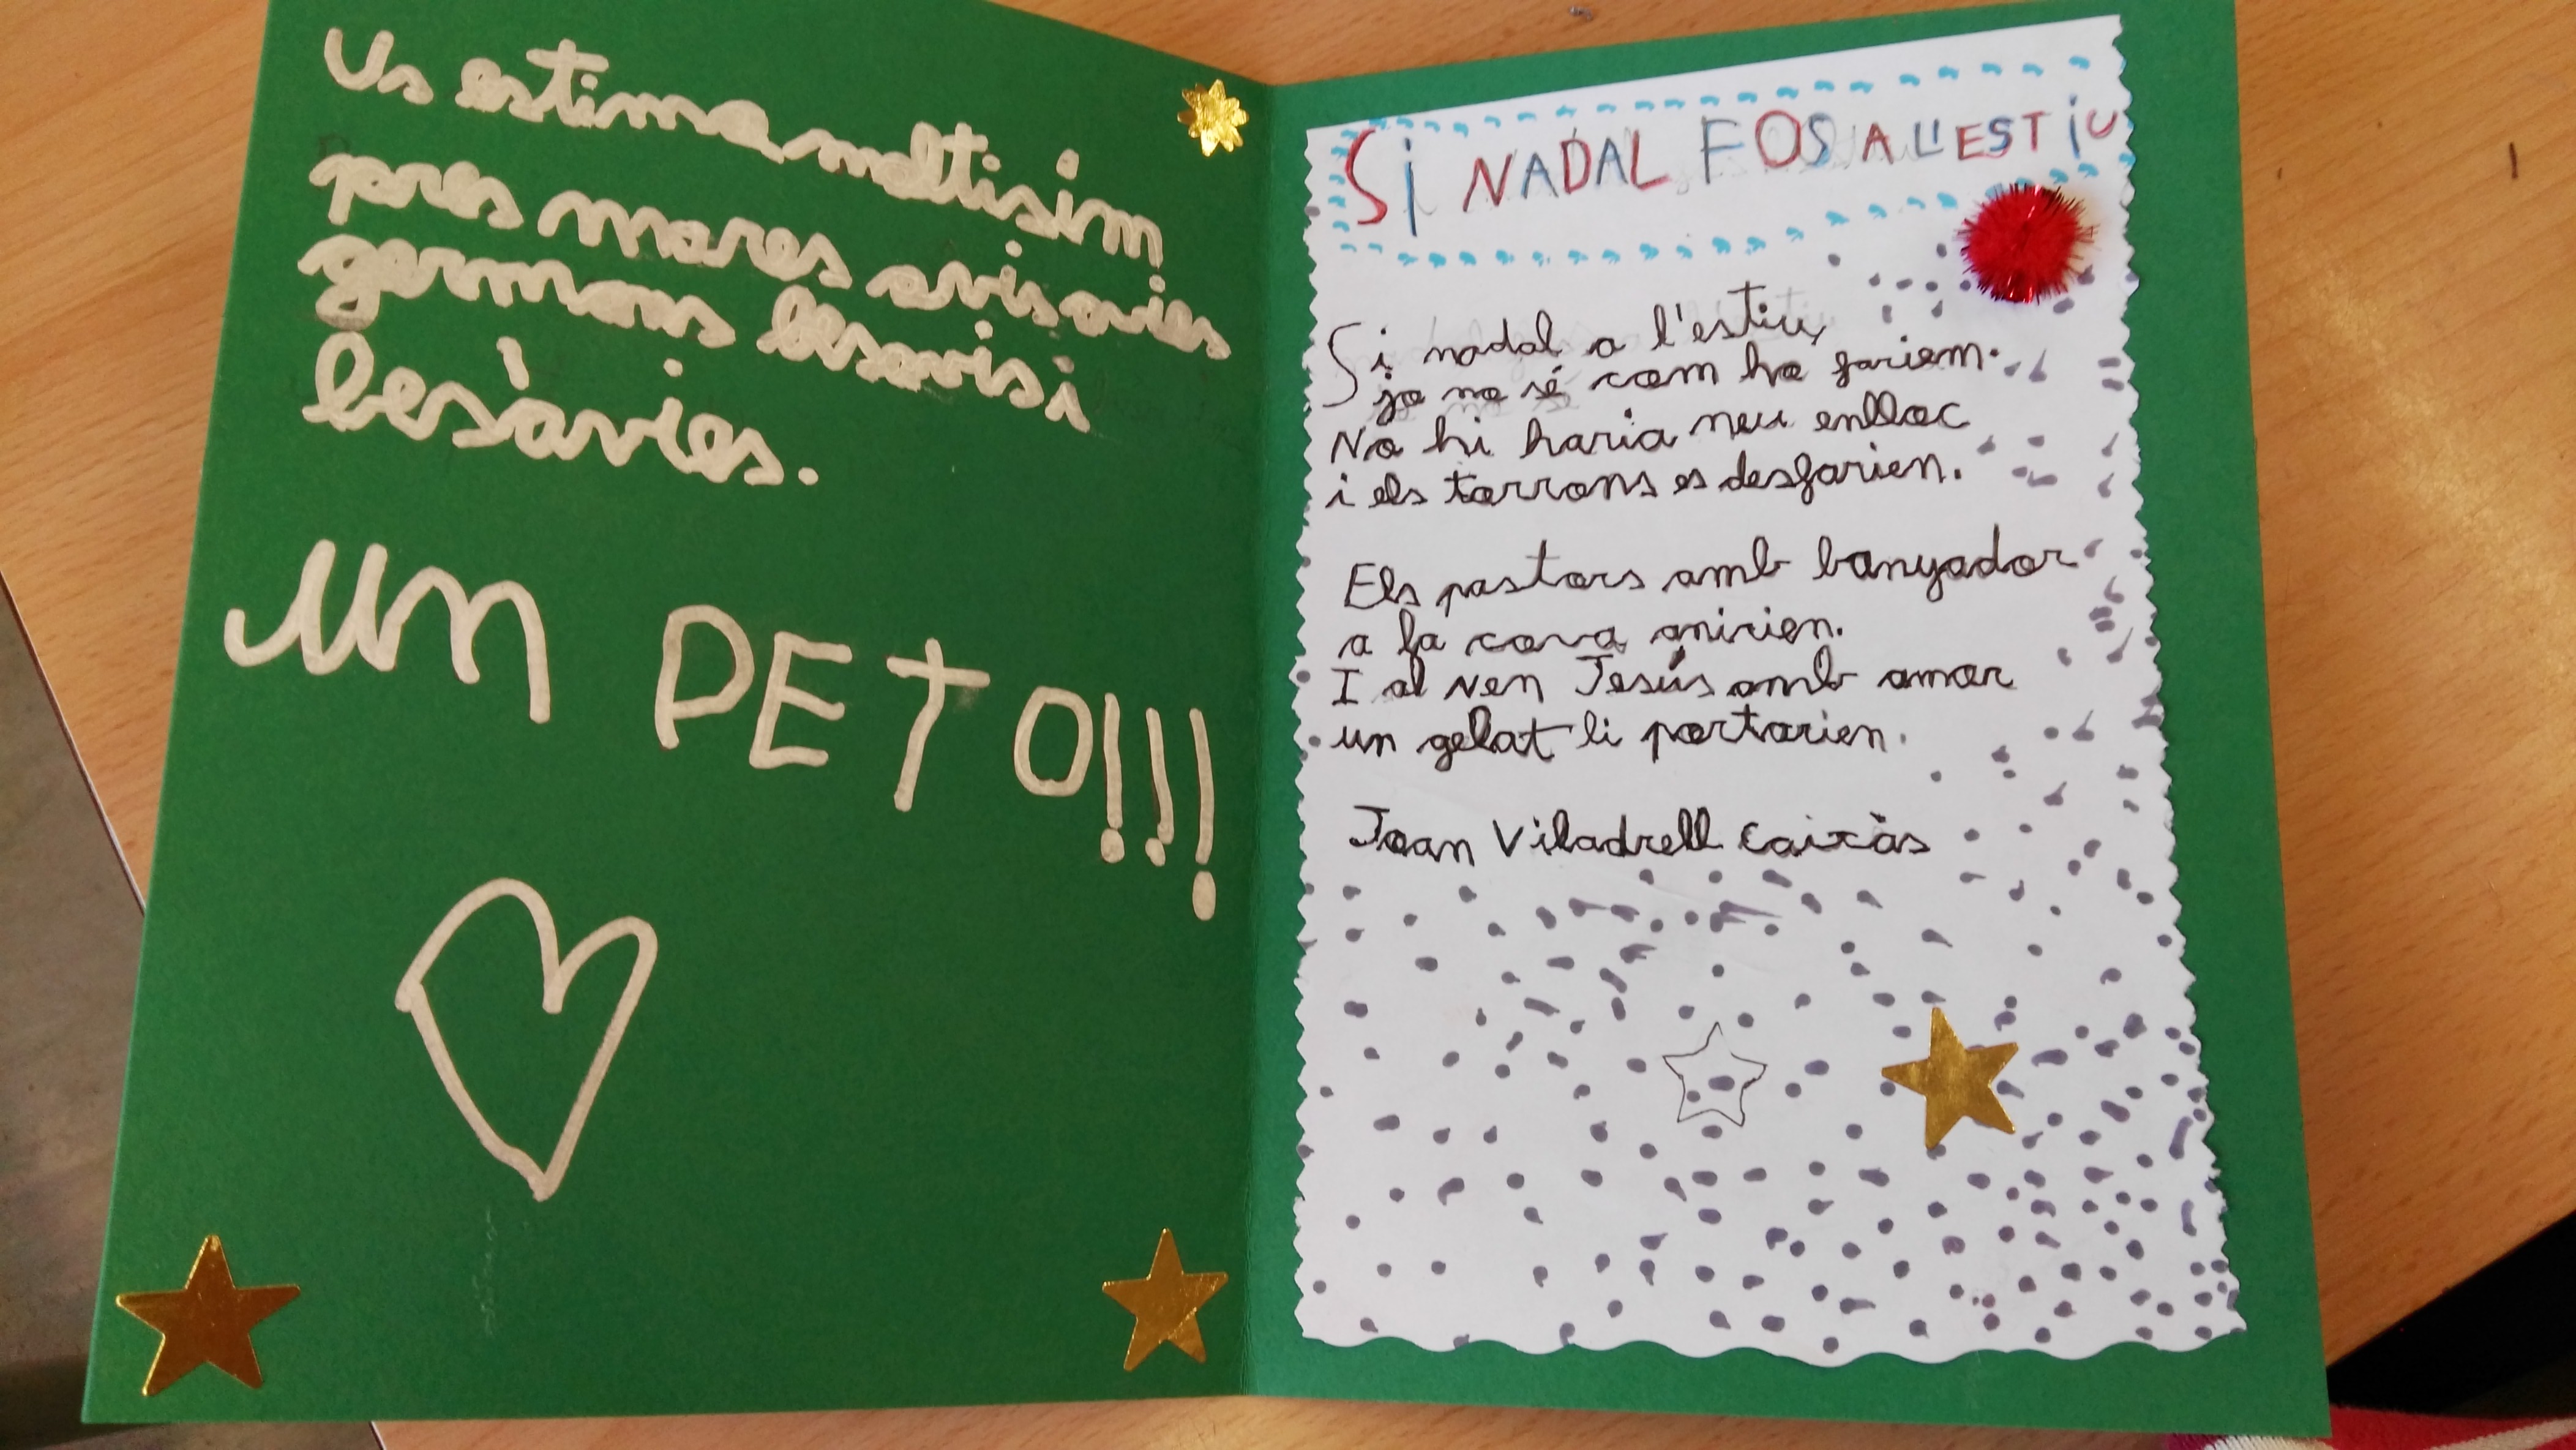 Us estima moltisim
pres mares avis avies
germans besavis i
besàvies.
UN PETO!!!
Si NADAL FOS A L'ESTiU
Si nadal a l'estiu,
jo no sé com ho fariem.
No hi haria neu enlloc
i els torrons es desfarien.
Els pastors amb banyador
a la cova anirien.
I al Nen Jesús amb amor
un gelat li portarien.
Joan Viladrell Caixàs